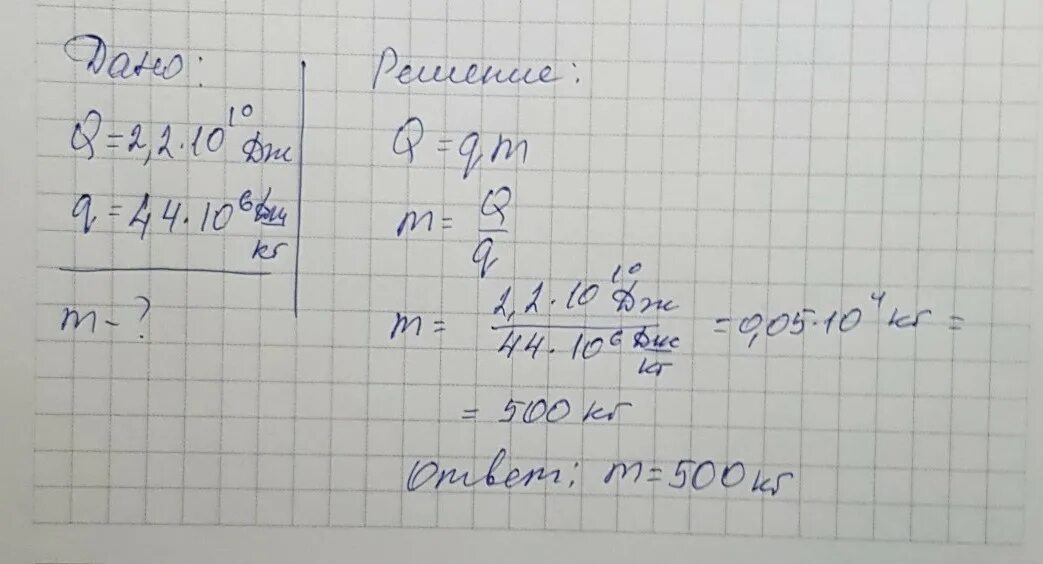 Дано:
Q = 2,2 · 10¹⁰ Дж
q = 44 · 10⁶ Дж/кг
m - ?
Решение:
Q = qm
m = Q/q
m = 2,2 · 10¹⁰ Дж / 44 · 10⁶ Дж/кг = 0,05 · 10⁴ кг =
= 500 кг
Ответ: m = 500 кг